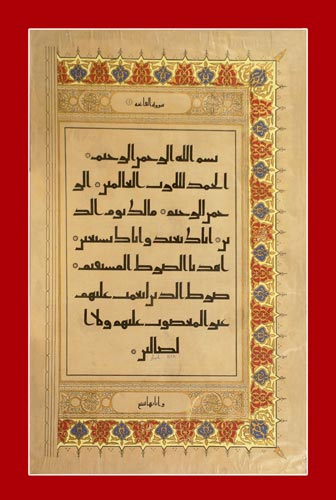 سورة الفاتحة
بسم الله الرحمن الرحيم
الحمد لله رب العالمين الر
حمن الرحيم مالك يوم الد
ين اياك نعبد و اياك نستعين
اهدنا الصراط المستقيم
صراط الذين انعمت عليهم
غير المغضوب عليهم ولا ا
لضالين
و اياتها سبع